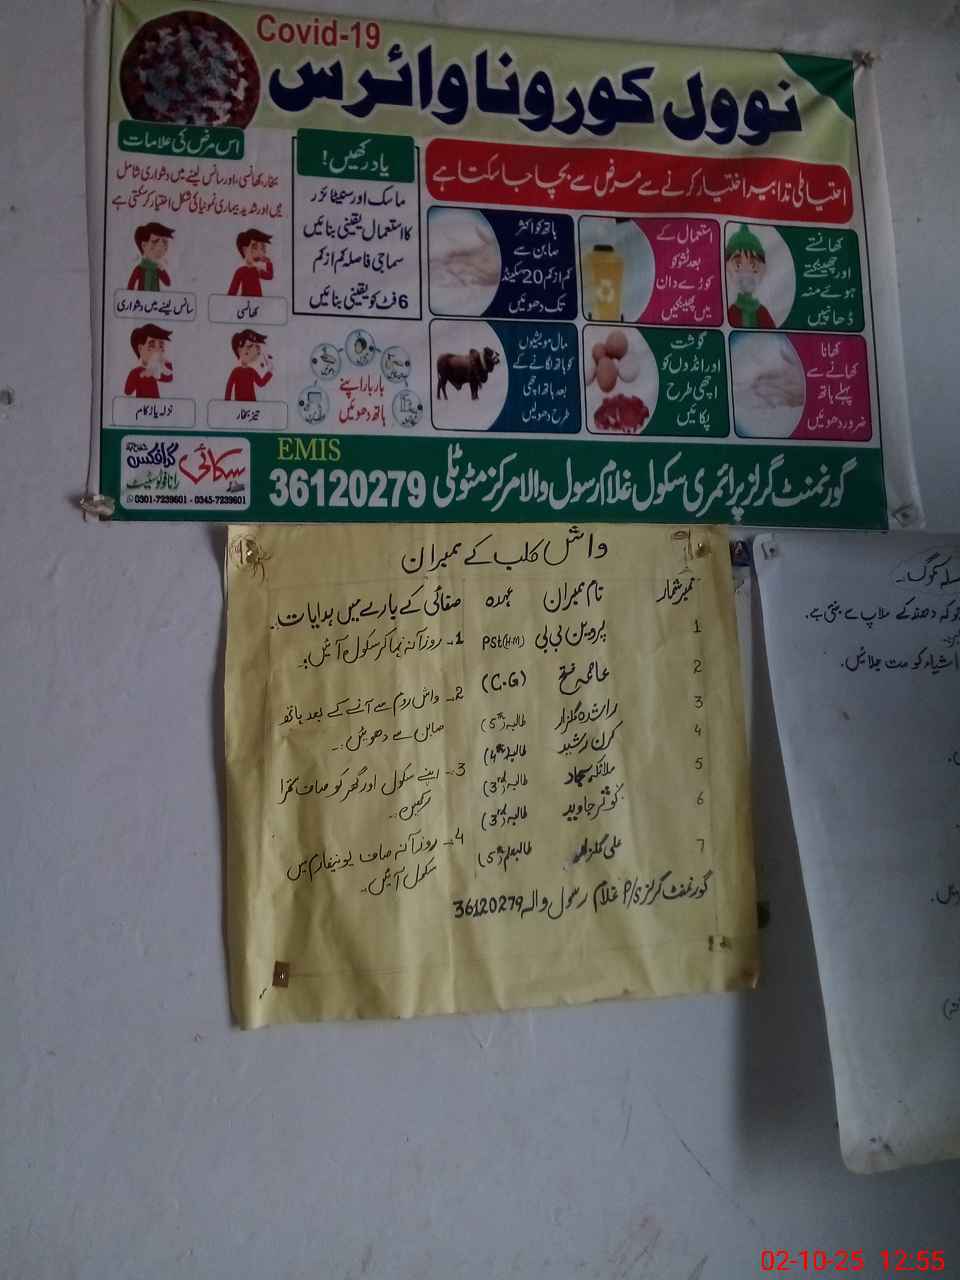 Covid-19
نوول کورونا وائرس
اس مرض کی علامات
بخار، کھانسی، اور سانس لینے میں دشواری شامل
ہیں اور شدید بیماری نمونیا کی شکل اختیار کر سکتی ہے
سانس لینے میں دشواری
کھانسی
نزلہ یا زکام
تیز بخار
یاد رکھیں!
ماسک اور سینیٹائزر
کا استعمال یقینی بنائیں
سماجی فاصلہ کم از کم
6 فٹ کو یقینی بنائیں
بار بار اپنے
ہاتھ دھوئیں
احتیاطی تدابیر اختیار کرنے سے مرض سے بچا جا سکتا ہے
کھانستے
اور چھینکتے
ہوئے منہ
ڈھانپیں
استعمال کے
بعد ٹشو کو
کوڑے دان
میں پھینکیں
ہاتھ کو اکثر
صابن سے
کم از کم 20 سیکنڈ
تک دھوئیں
کھانا
کھانے سے
پہلے ہاتھ
ضرور دھوئیں
گوشت
اور انڈوں کو
اچھی طرح
پکائیں
مال مویشیوں
کو ہاتھ لگانے کے
بعد ہاتھ اچھی
طرح دھوئیں
گورنمنٹ گرلز پرائمری سکول غلام رسول والا مرکز مٹوٹلی
EMIS
36120279
سکائی گرافکس
رانا فوٹوسٹیٹ
0301-7239601 - 0345-7239601
واش کلب کے ممبران
نمبر شمار نام ممبران عہدہ صفائی کے بارے میں ہدایات
1 پروین بی بی PST(H.M)
2 (C.G)
3 راشدہ گلزار طالبہ (5th)
4 کرن رشید طالبہ (4th)
5 ملائکہ سجاد طالبہ (3rd)
6 کوثر جاوید طالبہ (3rd)
7 علی گلزار طالبعلم (5th)
1- روزآنہ نہا کر سکول آئیں۔
2- واش روم سے آنے کے بعد ہاتھ
صابن سے دھوئیں۔
3- اپنے سکول اور گھر کو صاف ستھرا
رکھیں۔
4- روزآنہ صاف یونیفارم میں
سکول آئیں۔
گورنمنٹ گرلز P/S غلام رسول والہ 36120279
کہ دھند کے ملاپ سے بنتی ہے۔
اشیاء کو مت جلائیں۔
02-10-25 12:55